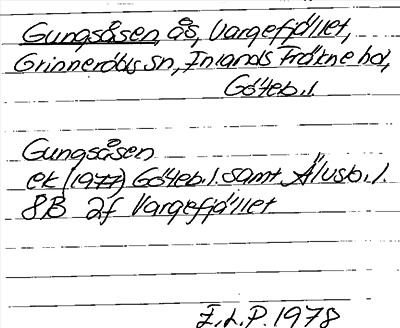 Gungsåsen, ås, Vargefjället,
Grinneröds sn, Inlands Fräkne hd,
Göteb. l.
Gungsåsen
ek (1977) Göteb. l. samt Älvsb. l.
8B 2f Vargefjället
E.L.P. 1978